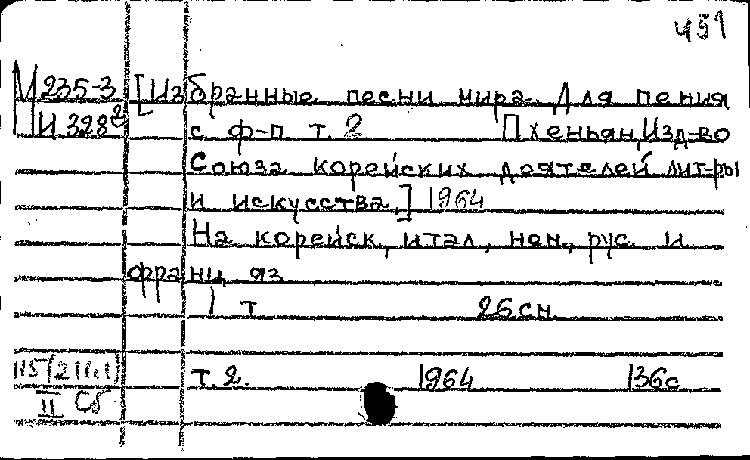 451
М 235-3 [Избранные песни мира. Для пения
И 328² с ф-п. т. 2 Пхеньян, Изд-во
Союза корейских деятелей лит-ры
и искусства,] 1964
На корейск., итал., нем., рус. и
франц. яз.
1 т. 26 см.
т. 2. 1964 136 с
II Сб